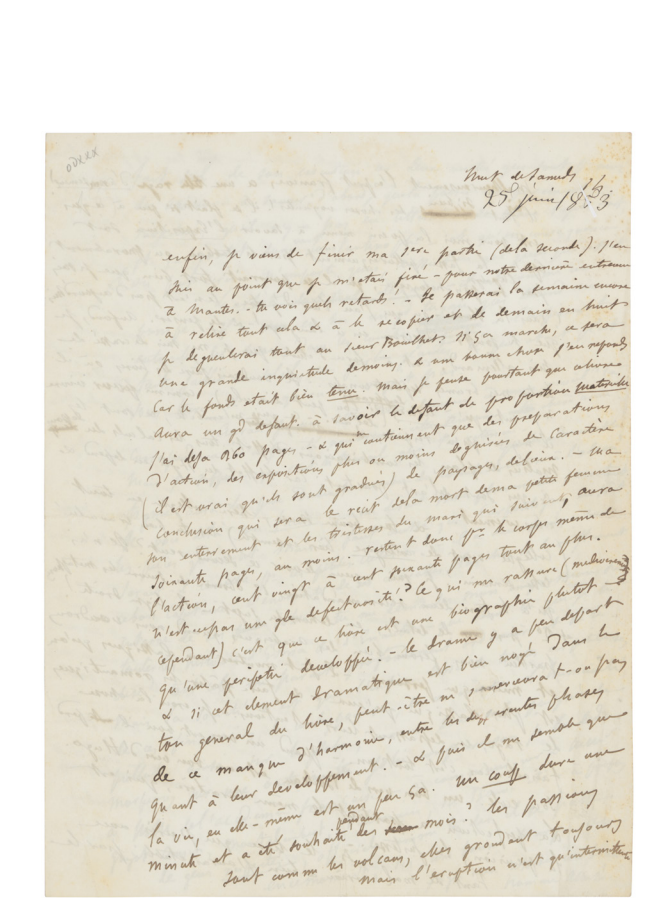 Nuit de Samedi
25 juin 1853
enfin, je viens de finir ma 1ere partie (de la seconde). J'en
suis au point que je m'étais fixé - pour notre dernière entrevue
à Mantes. - tu vois quels retards. - Je passerai la semaine encore
à relire tout cela & à le recopier et de demain en huit
je dégueulerai tout au sieur Bouilhet. Si ça marche, ce sera
une grande inquiétude de moins. & une bonne chose j'en réponds
Car le fonds était bien tenu. mais je pense pourtant que ce livre
aura un gd défaut. à savoir le défaut de proportion matérielle
J'ai déjà 260 pages - & qui ne contiennent que des préparations
d'action, des expositions plus ou moins déguisées de Caractère
(il est vrai qu'ils sont gradués) de paysages, de lieux. - ma
conclusion qui sera le récit de la mort de ma petite femme
son enterrement et les tristesses du mari qui suivent, aura
soixante pages, au moins. restent donc pr le corps même de
l'action, cent vingt à cent soixante pages tout au plus.
n'est-ce pas une gde défectuosité? Ce qui me rassure (médiocrement
cependant) c'est que ce livre est une biographie plutôt
qu'une péripétie développée. - le drame y a peu de part
& si cet élément dramatique est bien noyé dans le
ton général du livre, peut-être ne s'apercevra-t-on pas
de ce manque d'harmonie, entre les différentes phases
quant à leur développement. - & puis il me semble que
la vie, en elle-même est un peu ça. un coup dure une
minute et a été souhaité pendant des mois? les passions
sont comme les volcans, elles grondent toujours
mais l'éruption n'est qu'intermittente